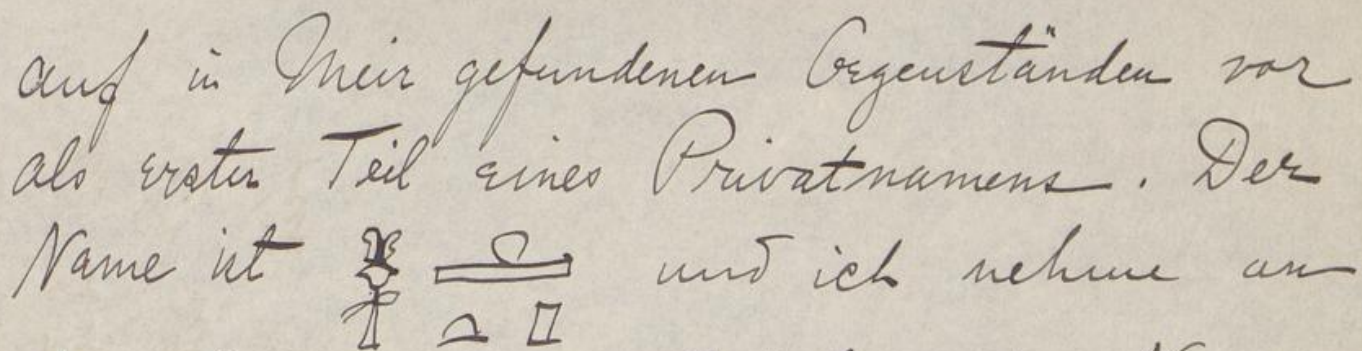 auf in Meir gefundenen Gegenständen vor
als erster Teil eines Privatnamens. Der
Name ist 𓋂𓊵𓏏𓊪 und ich nehme an